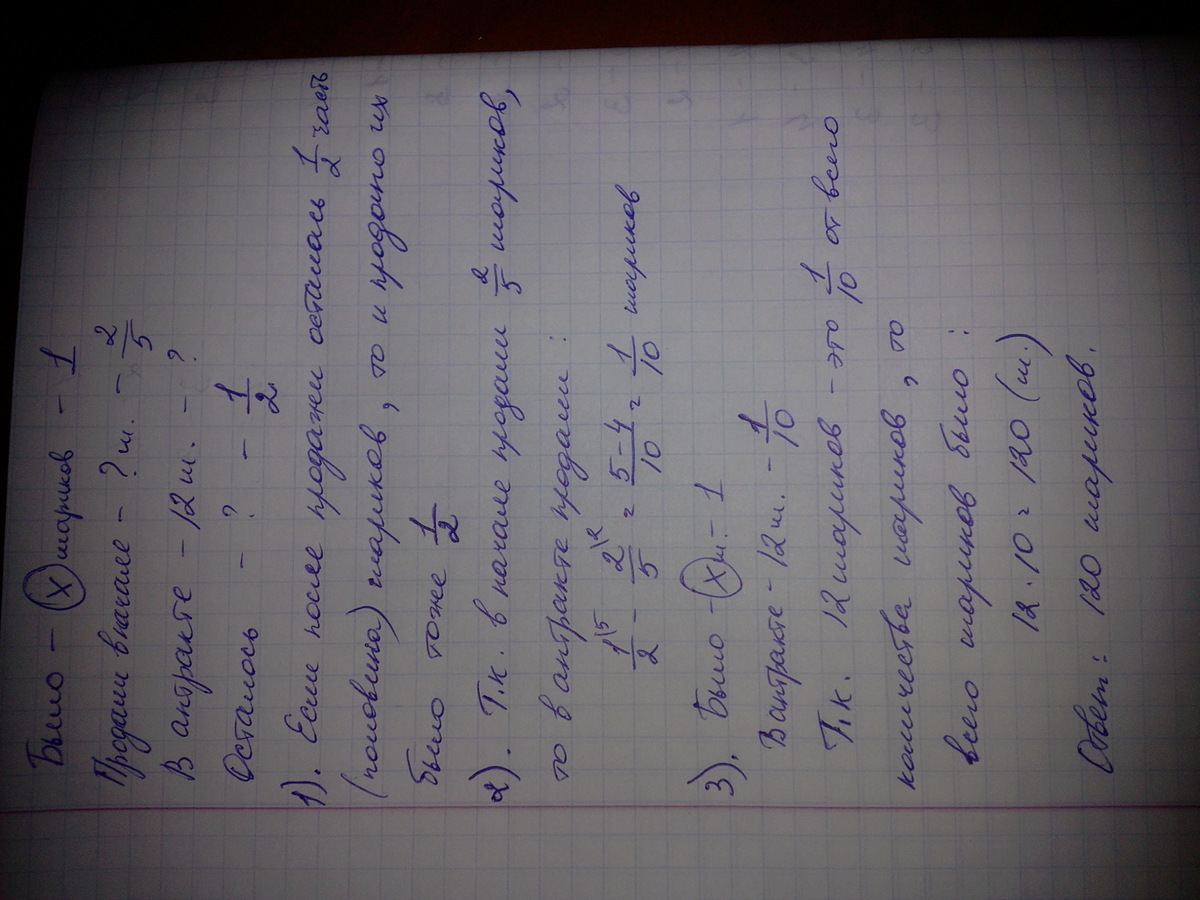 Было – х шариков – 1
Продали вначале – ? ш. – 2/5
В антракте – 12 ш. – ?
Осталось – ? – 1/2
1). Если после продажи осталась 1/2 часть
(половина) шариков, то и продано их
было тоже 1/2
2). Т.к. в начале продали 2/5 шариков,
то в антракте продали:
1/2 \5 – 2/5 \2 = 5–4/10 = 1/10 шариков
3). Было – х ш. – 1
В антракте – 12 ш. – 1/10
Т.к. 12 шариков – это 1/10 от всего
количества шариков, то
всего шариков было:
12 · 10 = 120 (ш.)
Ответ: 120 шариков.